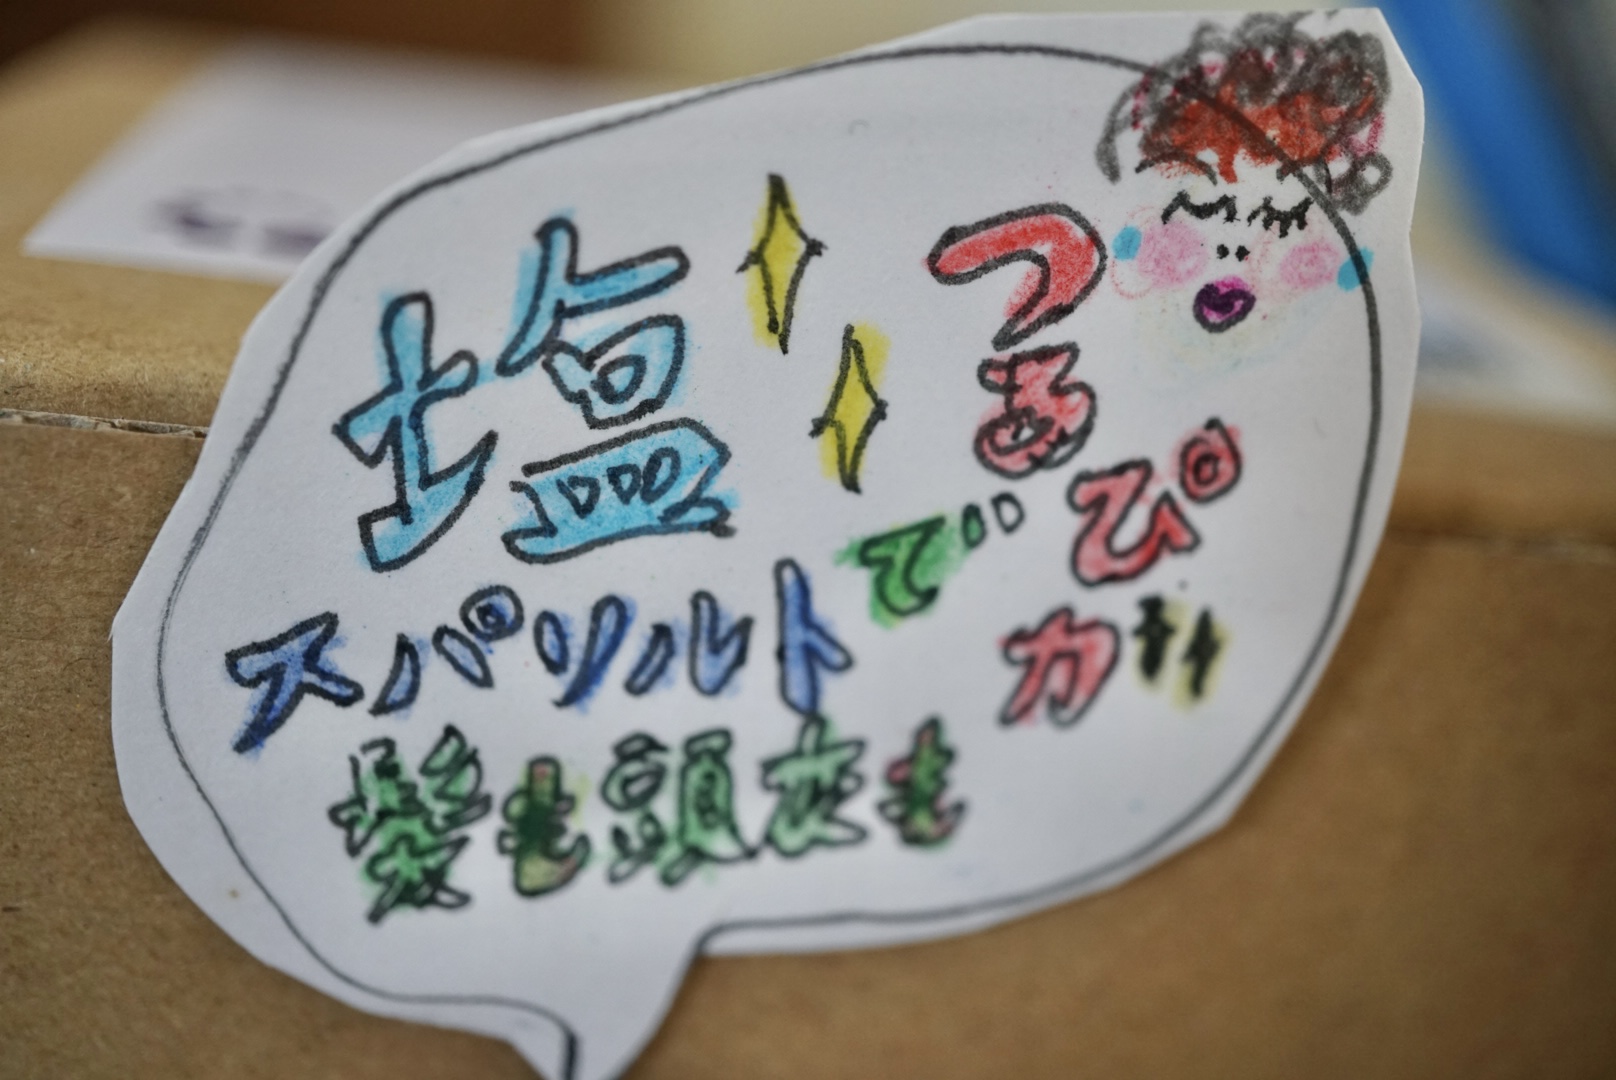 塩
スパソルトで
髪も頭皮も
つるぴカ!!